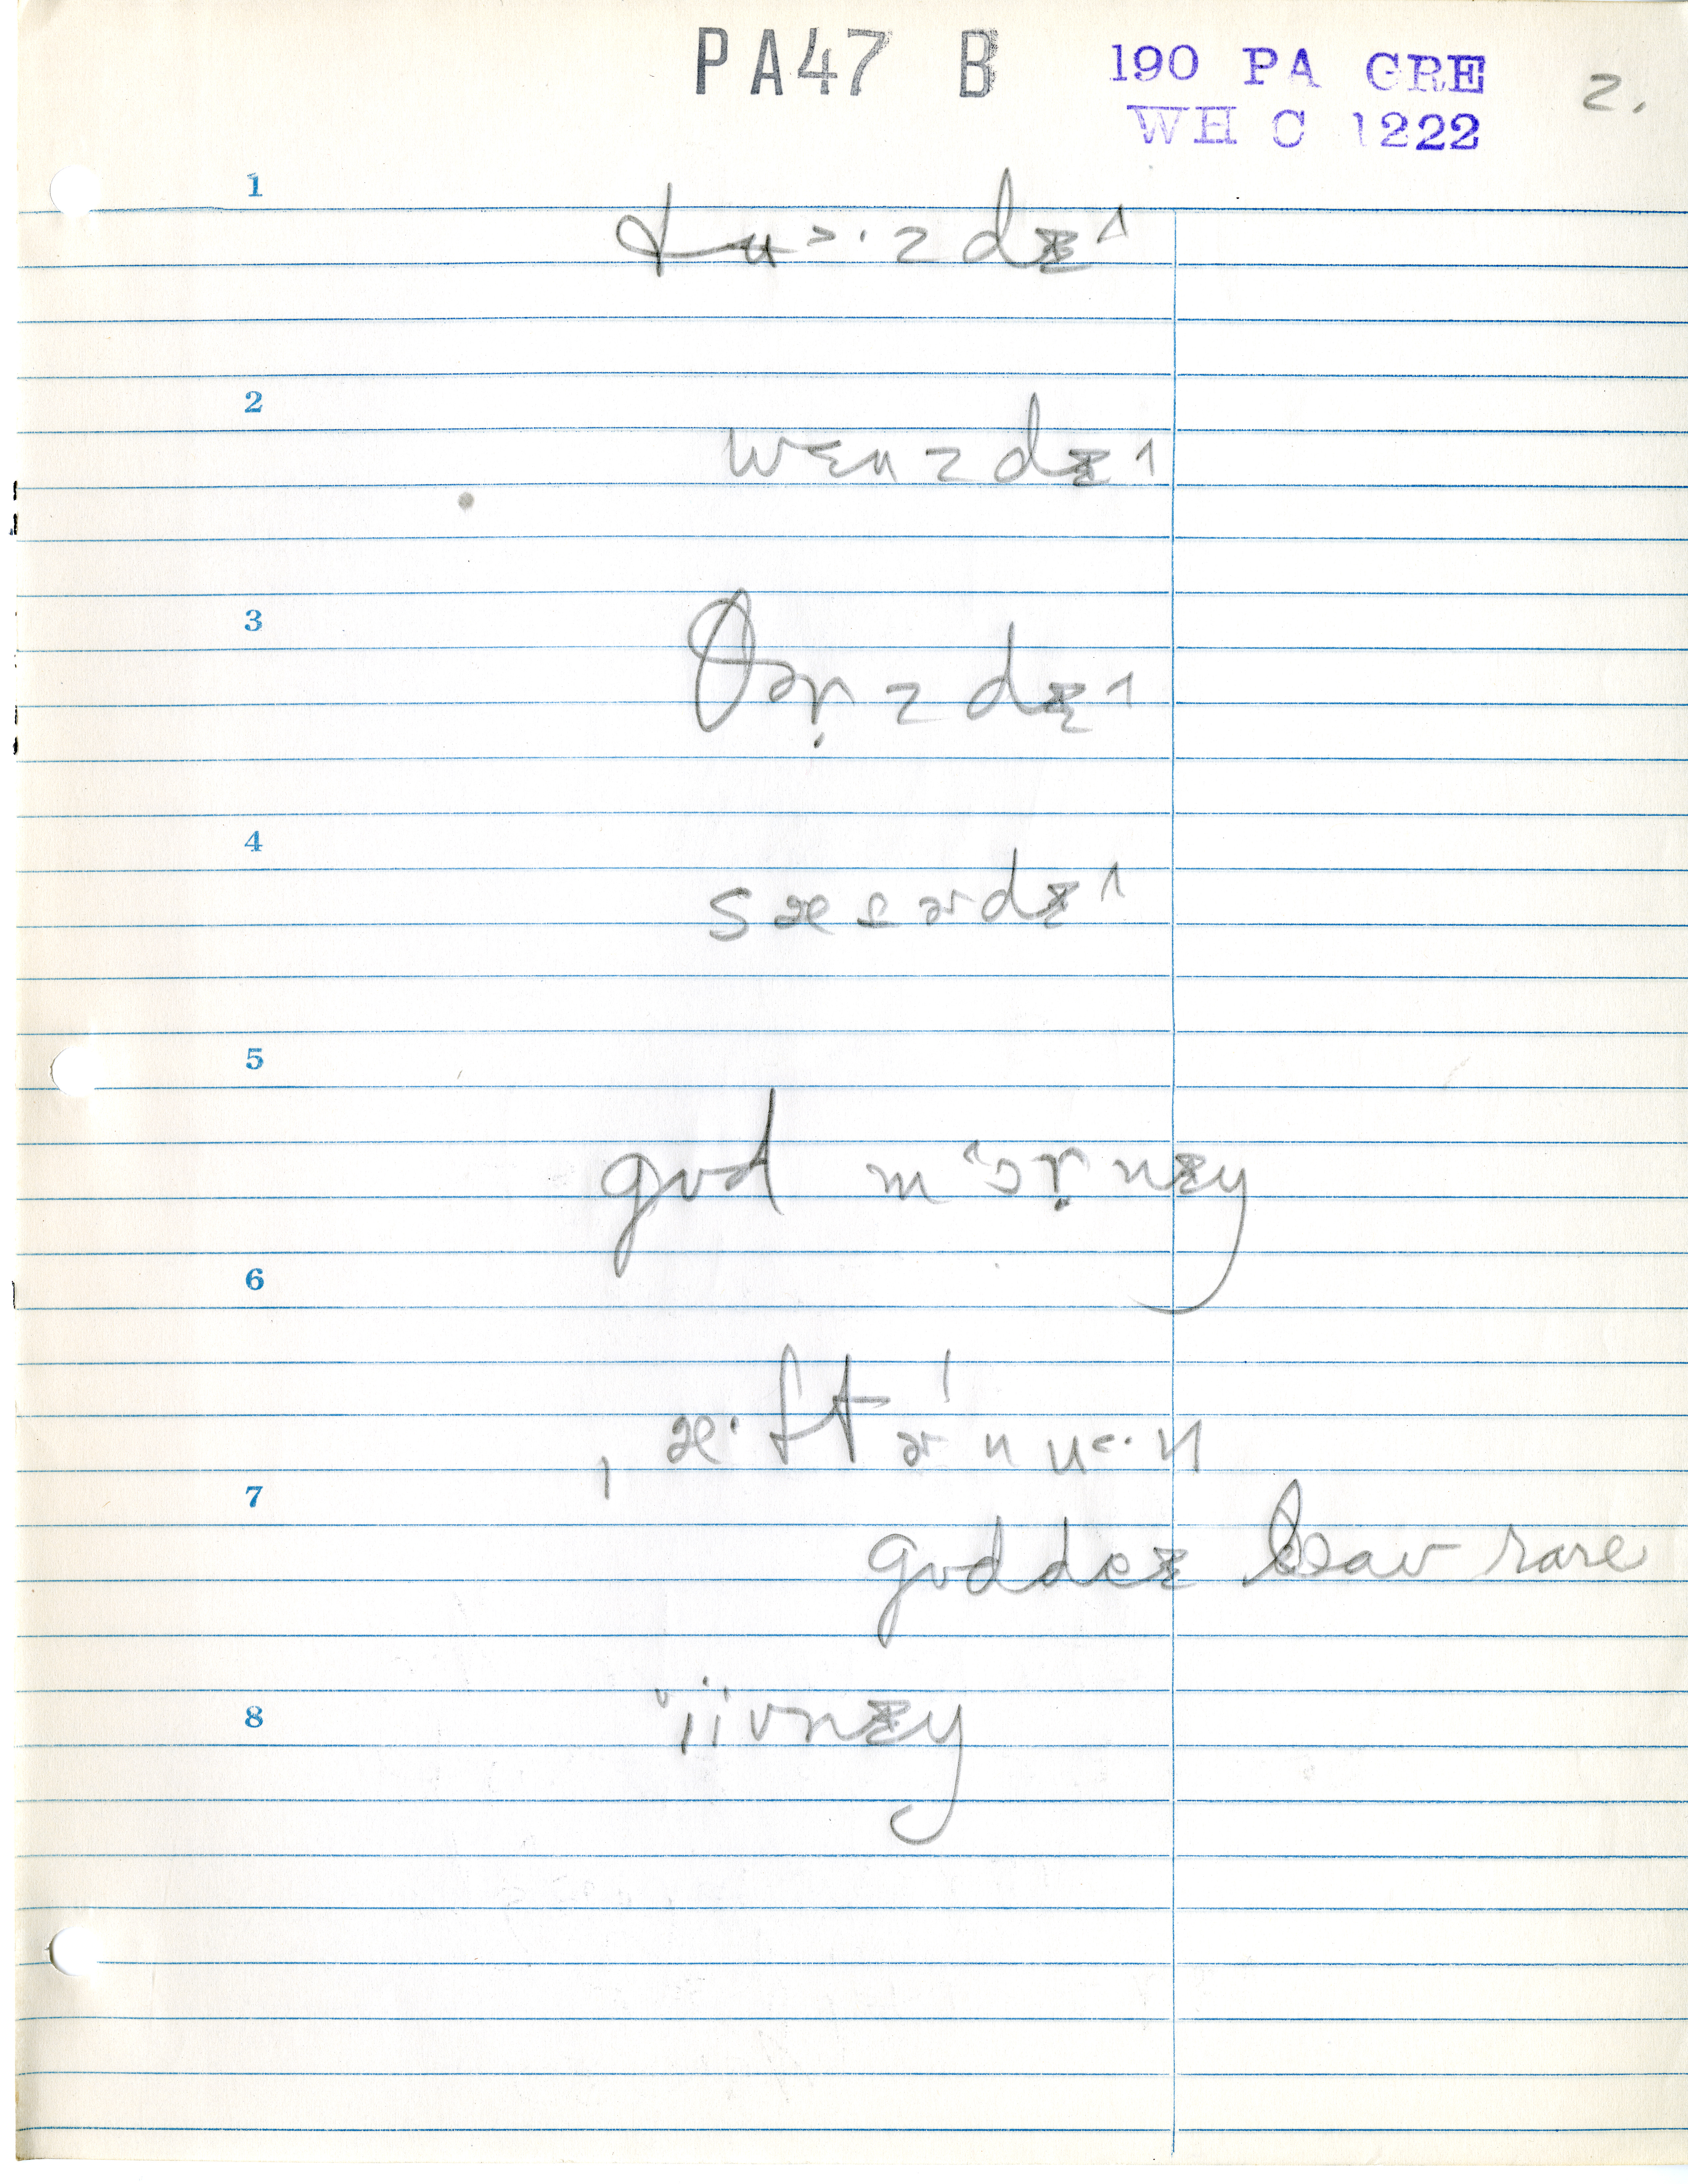 PA47 B
190 PA GRE
WH C 1222
2.
1
tu˃·zdɪ˄
2
wɛnzdɪ˄
3
θɚ̣zdɪ˄
4
sætɚdɪ˄
5
gʊd m˂ɔṛnɪŋ
6
ˌæ·ftɚˈnu˂·n
7
gʊddeɪ rare
8
ˈiivnɪŋ